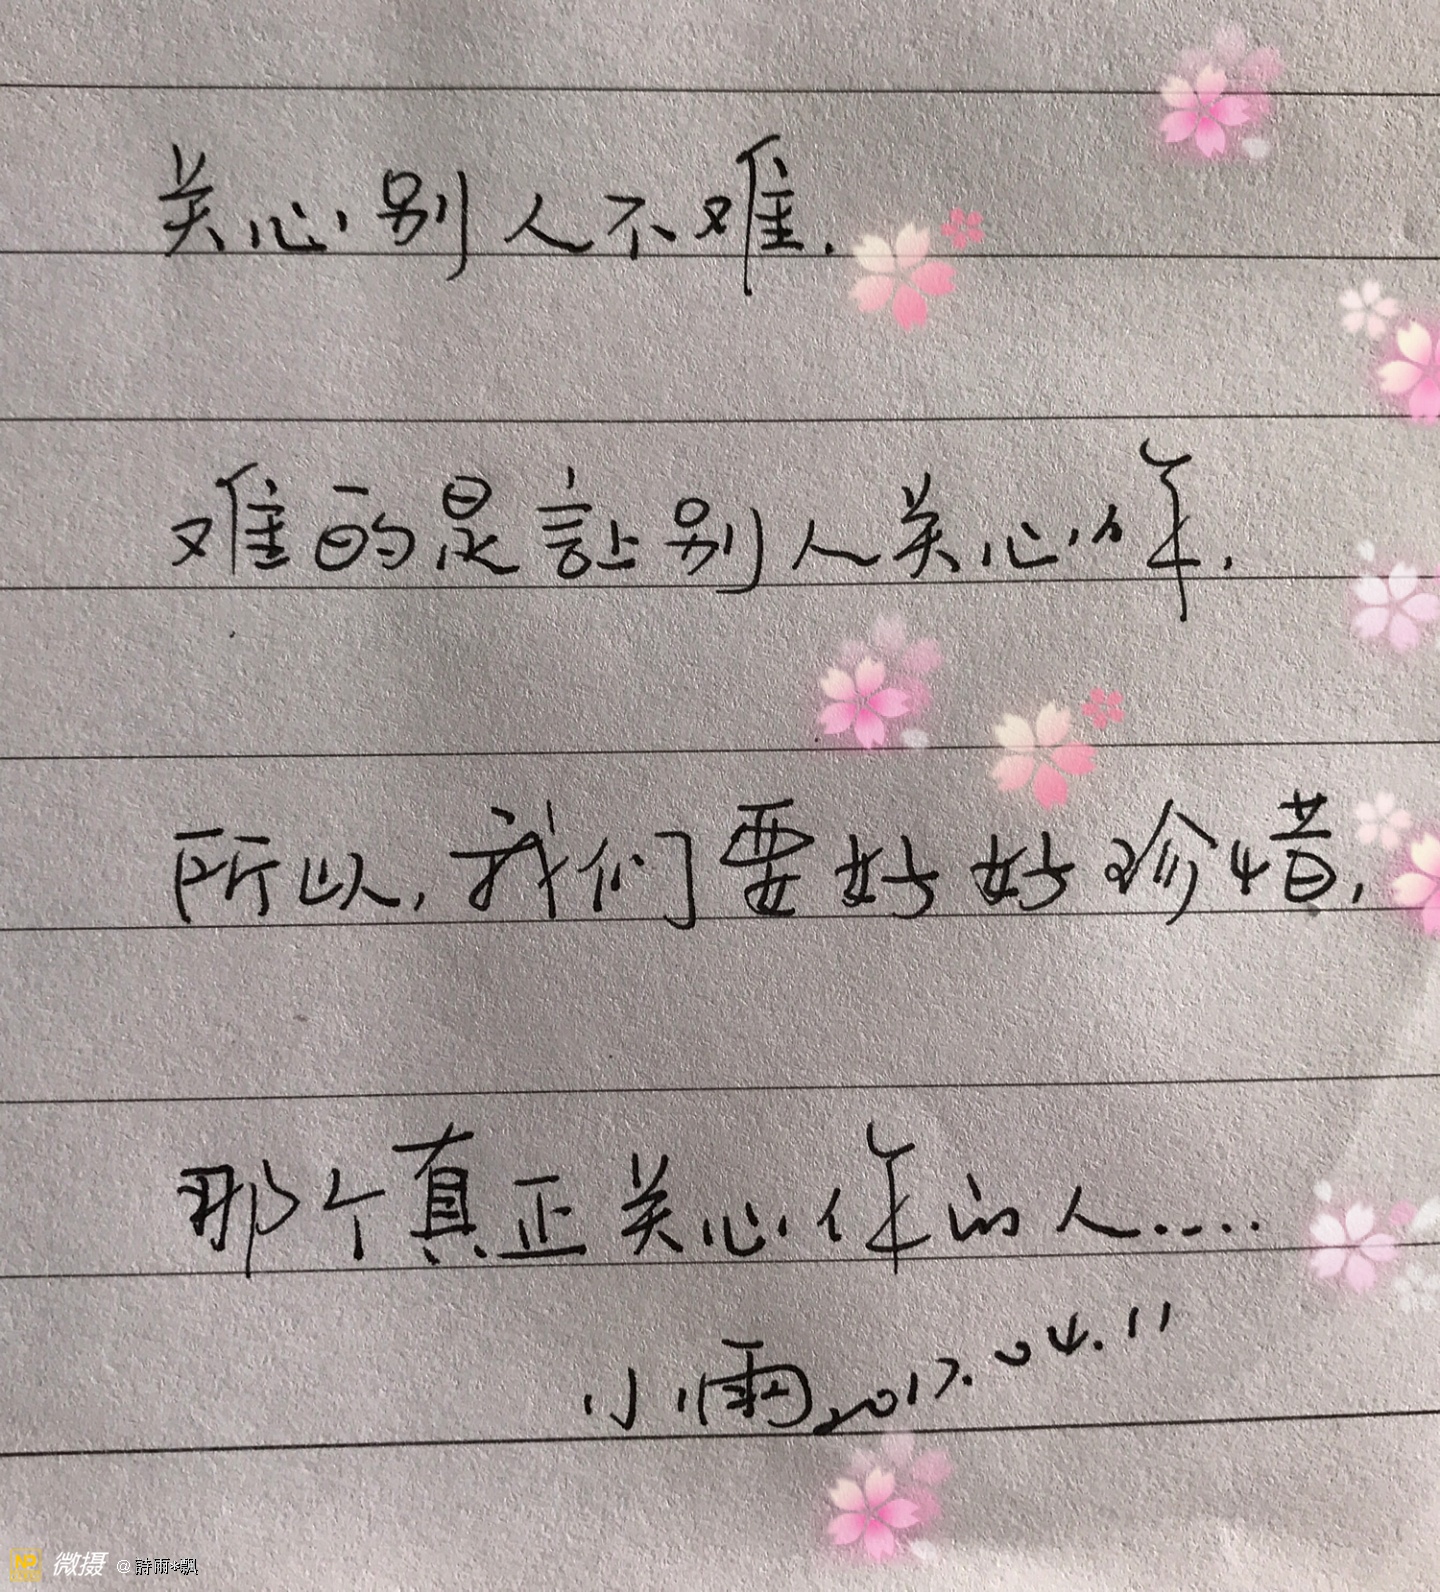 关心别人不难.
难的是让别人关心你,
所以,我们要好好珍惜,
那个真正关心你的人.....
小雨2017.04.11
微摄 @詩雨*飘